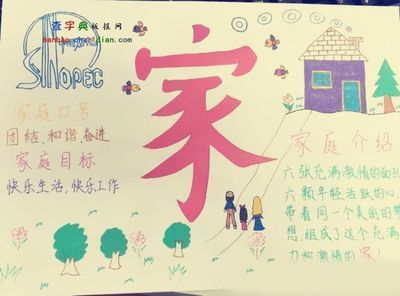 查字典板报网
banbao.chazidian.com
SINOPEC
家
家庭口号
团结、和谐、奋进
家庭目标
快乐生活、快乐工作
家庭介绍
六张充满激情的面孔
六颗年轻活跃的心、
带着同一个美国的梦
想、组成了这个充满
力和激情的家!